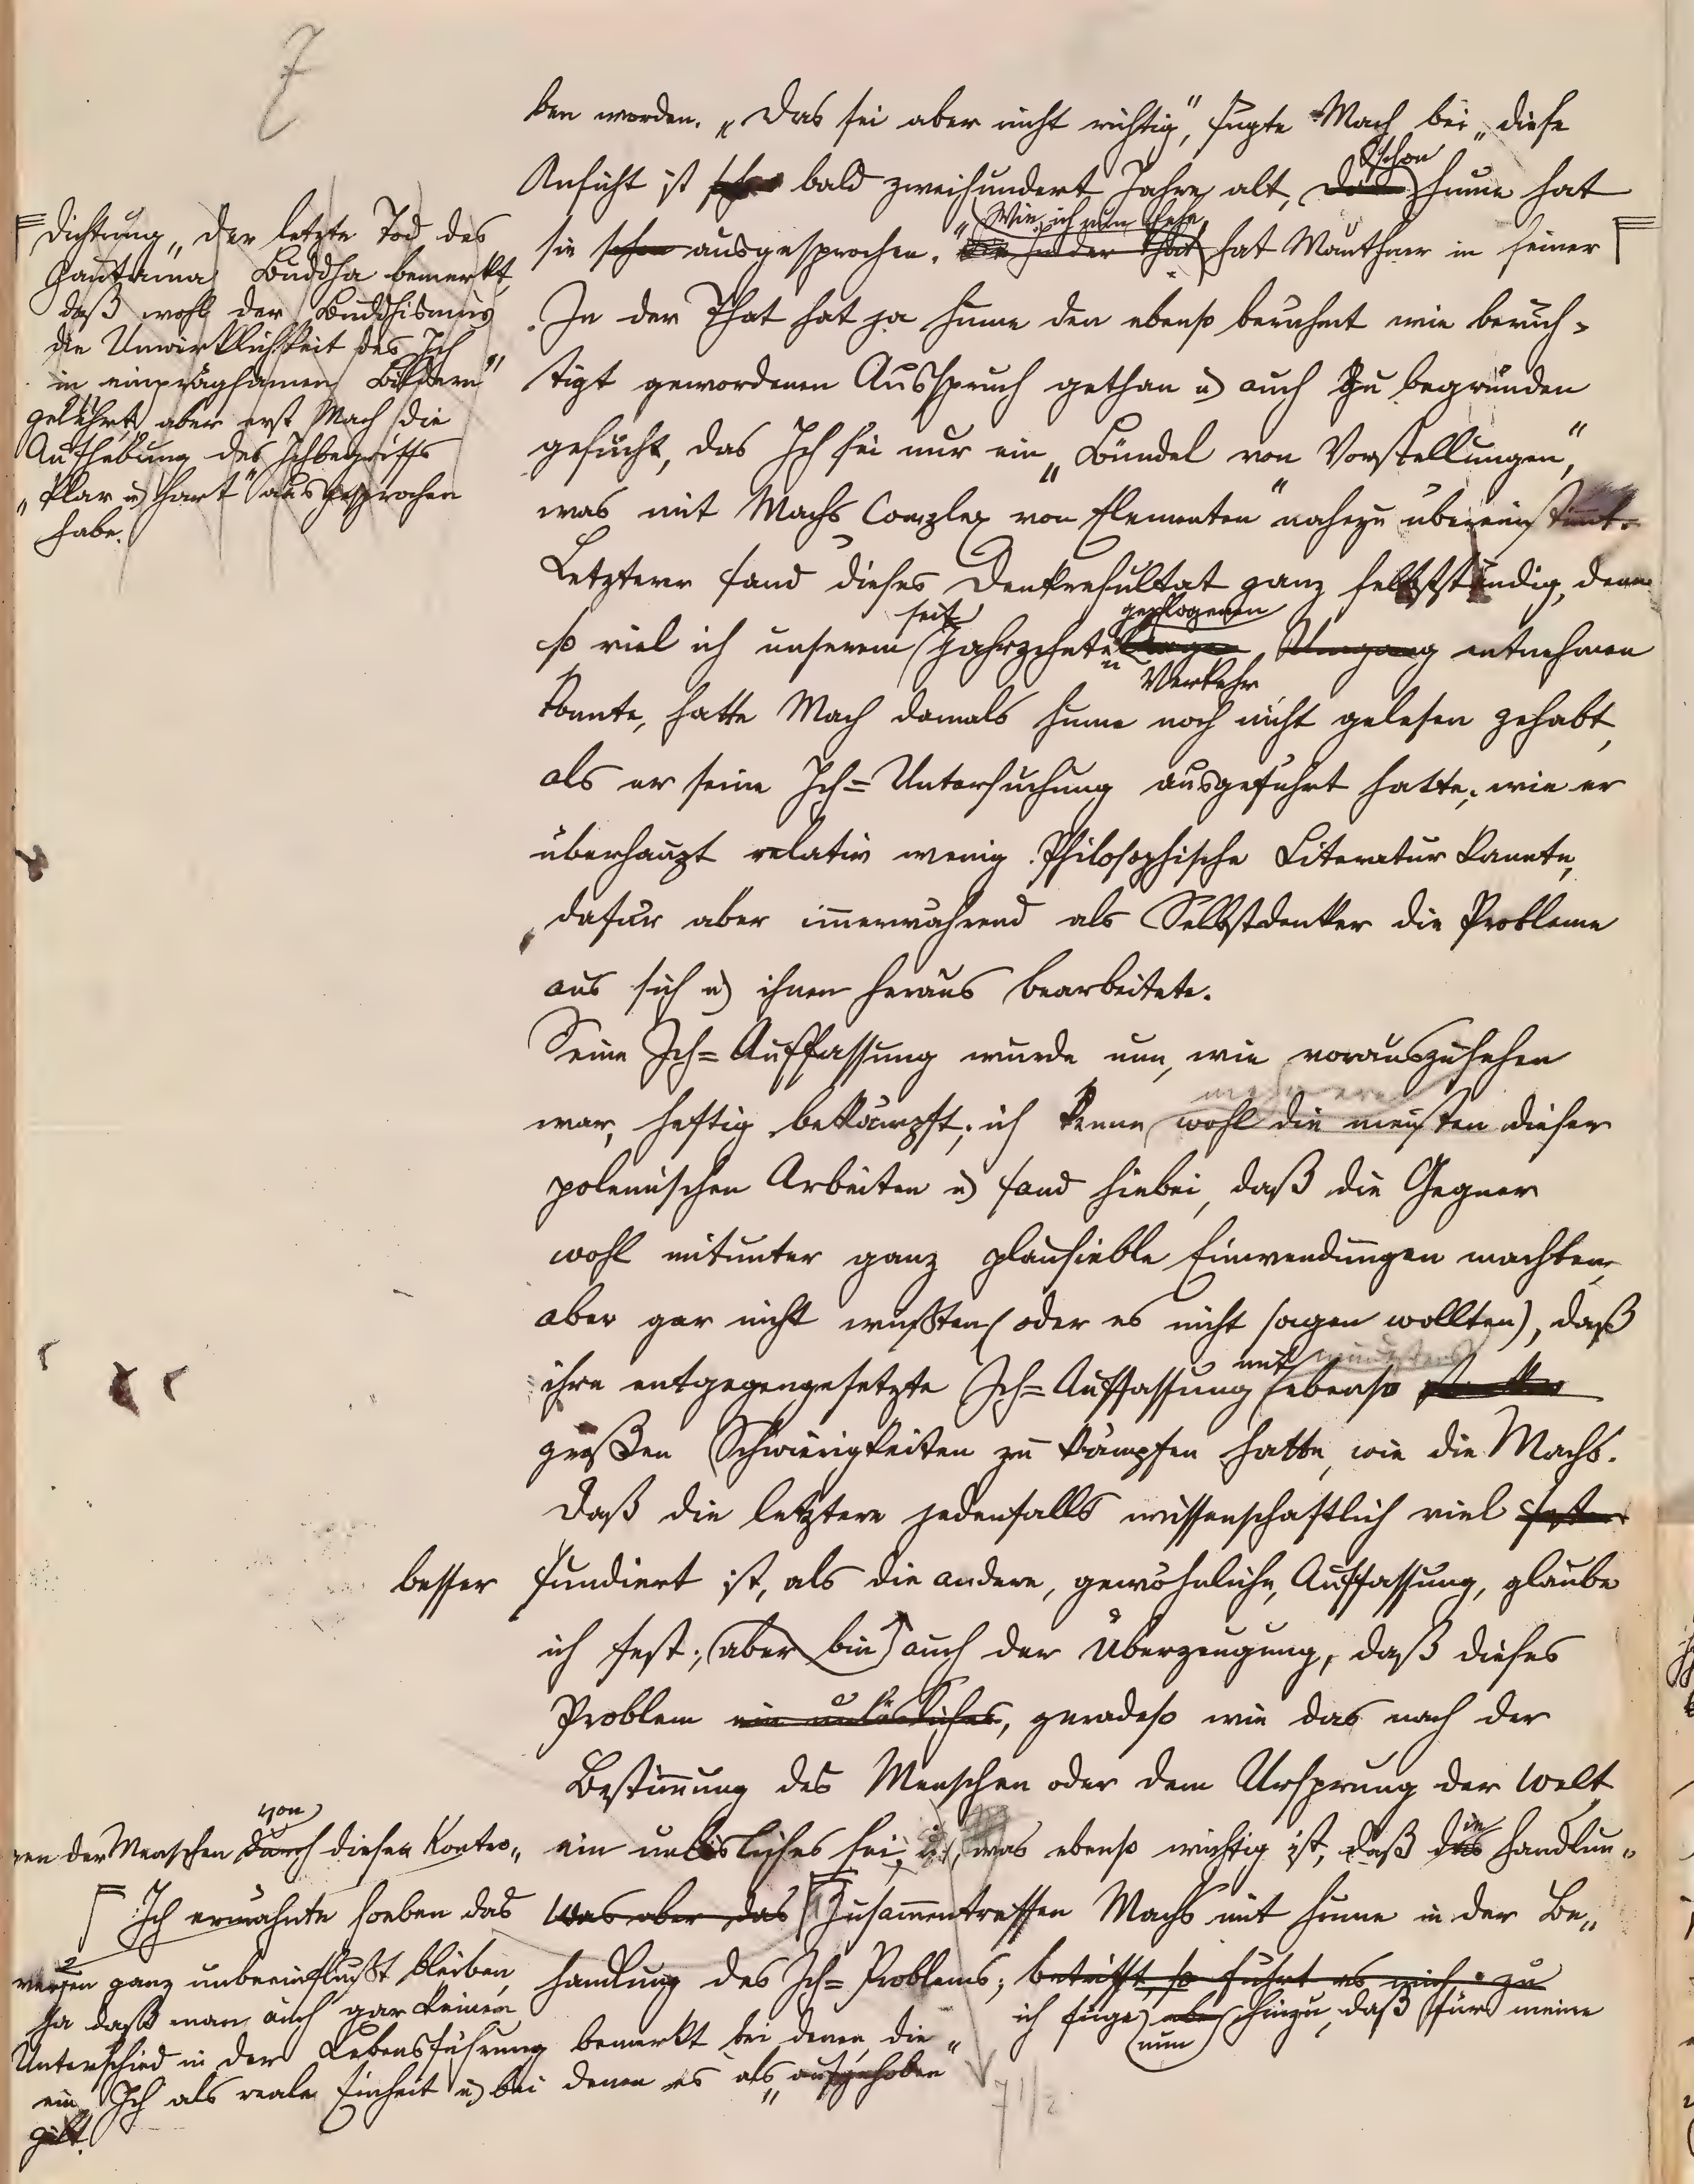 7
ben worden. „Das sei aber nicht richtig", fügte Mach bei „diese
Ansicht ist bald zweihundert Jahre alt, schon Hume hat
sie schon ausgesprochen." Wie ich nun sehe, In der That hat Mauthner in seiner
Dichtung „Der letzte Tod des
Gautama Buddha bemerkt,
daß wohl der Buddhismus
die Unwirklichkeit des Ich
„in einprägsamen Bildern"
gelehrt, aber erst Mach die
Aufhebung des Ichbegriffs
„klar u) hart" ausgesprochen
habe.
In der That hat ja Hume den ebenso berühmt wie berüch-
tigt gewordenen Ausspruch gethan u) auch zu begründen
gesucht, das Ich sei nur ein „Bündel von Vorstellungen",
was mit Machs „Complex von Elementen" nahezu übereinstimmt.
Letzterer fand dieses Denkresultat ganz selbstständig, denn
so viel ich unserem seit Jahrzehnten gepflogenen Umgang Verkehr entnehmen
konnte, hatte Mach damals Hume noch nicht gelesen gehabt,
als er seine Ich=Untersuchung ausgeführt hatte, wie er
überhaupt relativ wenig Philosophische Literatur kannte,
dafür aber immerwährend als Selbstdenker die Probleme
aus sich u) ihnen heraus bearbeitete.
Seine Ich=Auffassung wurde nun, wie vorauszusehen
war, heftig bekämpft; ich kenne wohl die meisten dieser
polemischen Arbeiten u) fand hiebei, daß die Gegner
wohl mitunter ganz plausieble Einwendungen machten,
aber gar nicht wußten (oder es nicht sagen wollten), daß
ihre entgegengesetzte Ich=Auffassung mit mindestens ebenso
großen Schwierigkeiten zu kämpfen hatte, wie die Machs.
Daß die letztere jedenfalls wissenschaftlich viel
besser fundiert ist, als die andere, gewöhnliche, Auffassung, glaube
ich fest; aber bin auch der Überzeugung, daß dieses
Problem ein unlösliches, geradeso wie das nach der
Bestimmung des Menschen oder dem Ursprung der Welt
ein unlösliches sei, u), was ebenso wichtig ist, daß die Handlun„
gen der Menschen durch von diesen Kontro„
versen ganz unbeeinflußt bleiben,
ja daß man auch gar keinen
Unterschied in der Lebensführung bemerkt bei denen, die
ein Ich als reale Einheit u) bei denen es als „aufgehoben"
gilt.
Ich erwähnte soeben das Was aber das Zusammentreffen Machs mit Hume in der Be„
handlung des Ich=Problems; betrifft, so führt es mich zu
ich füge aber nun hinzu, daß für meine
7 1/2